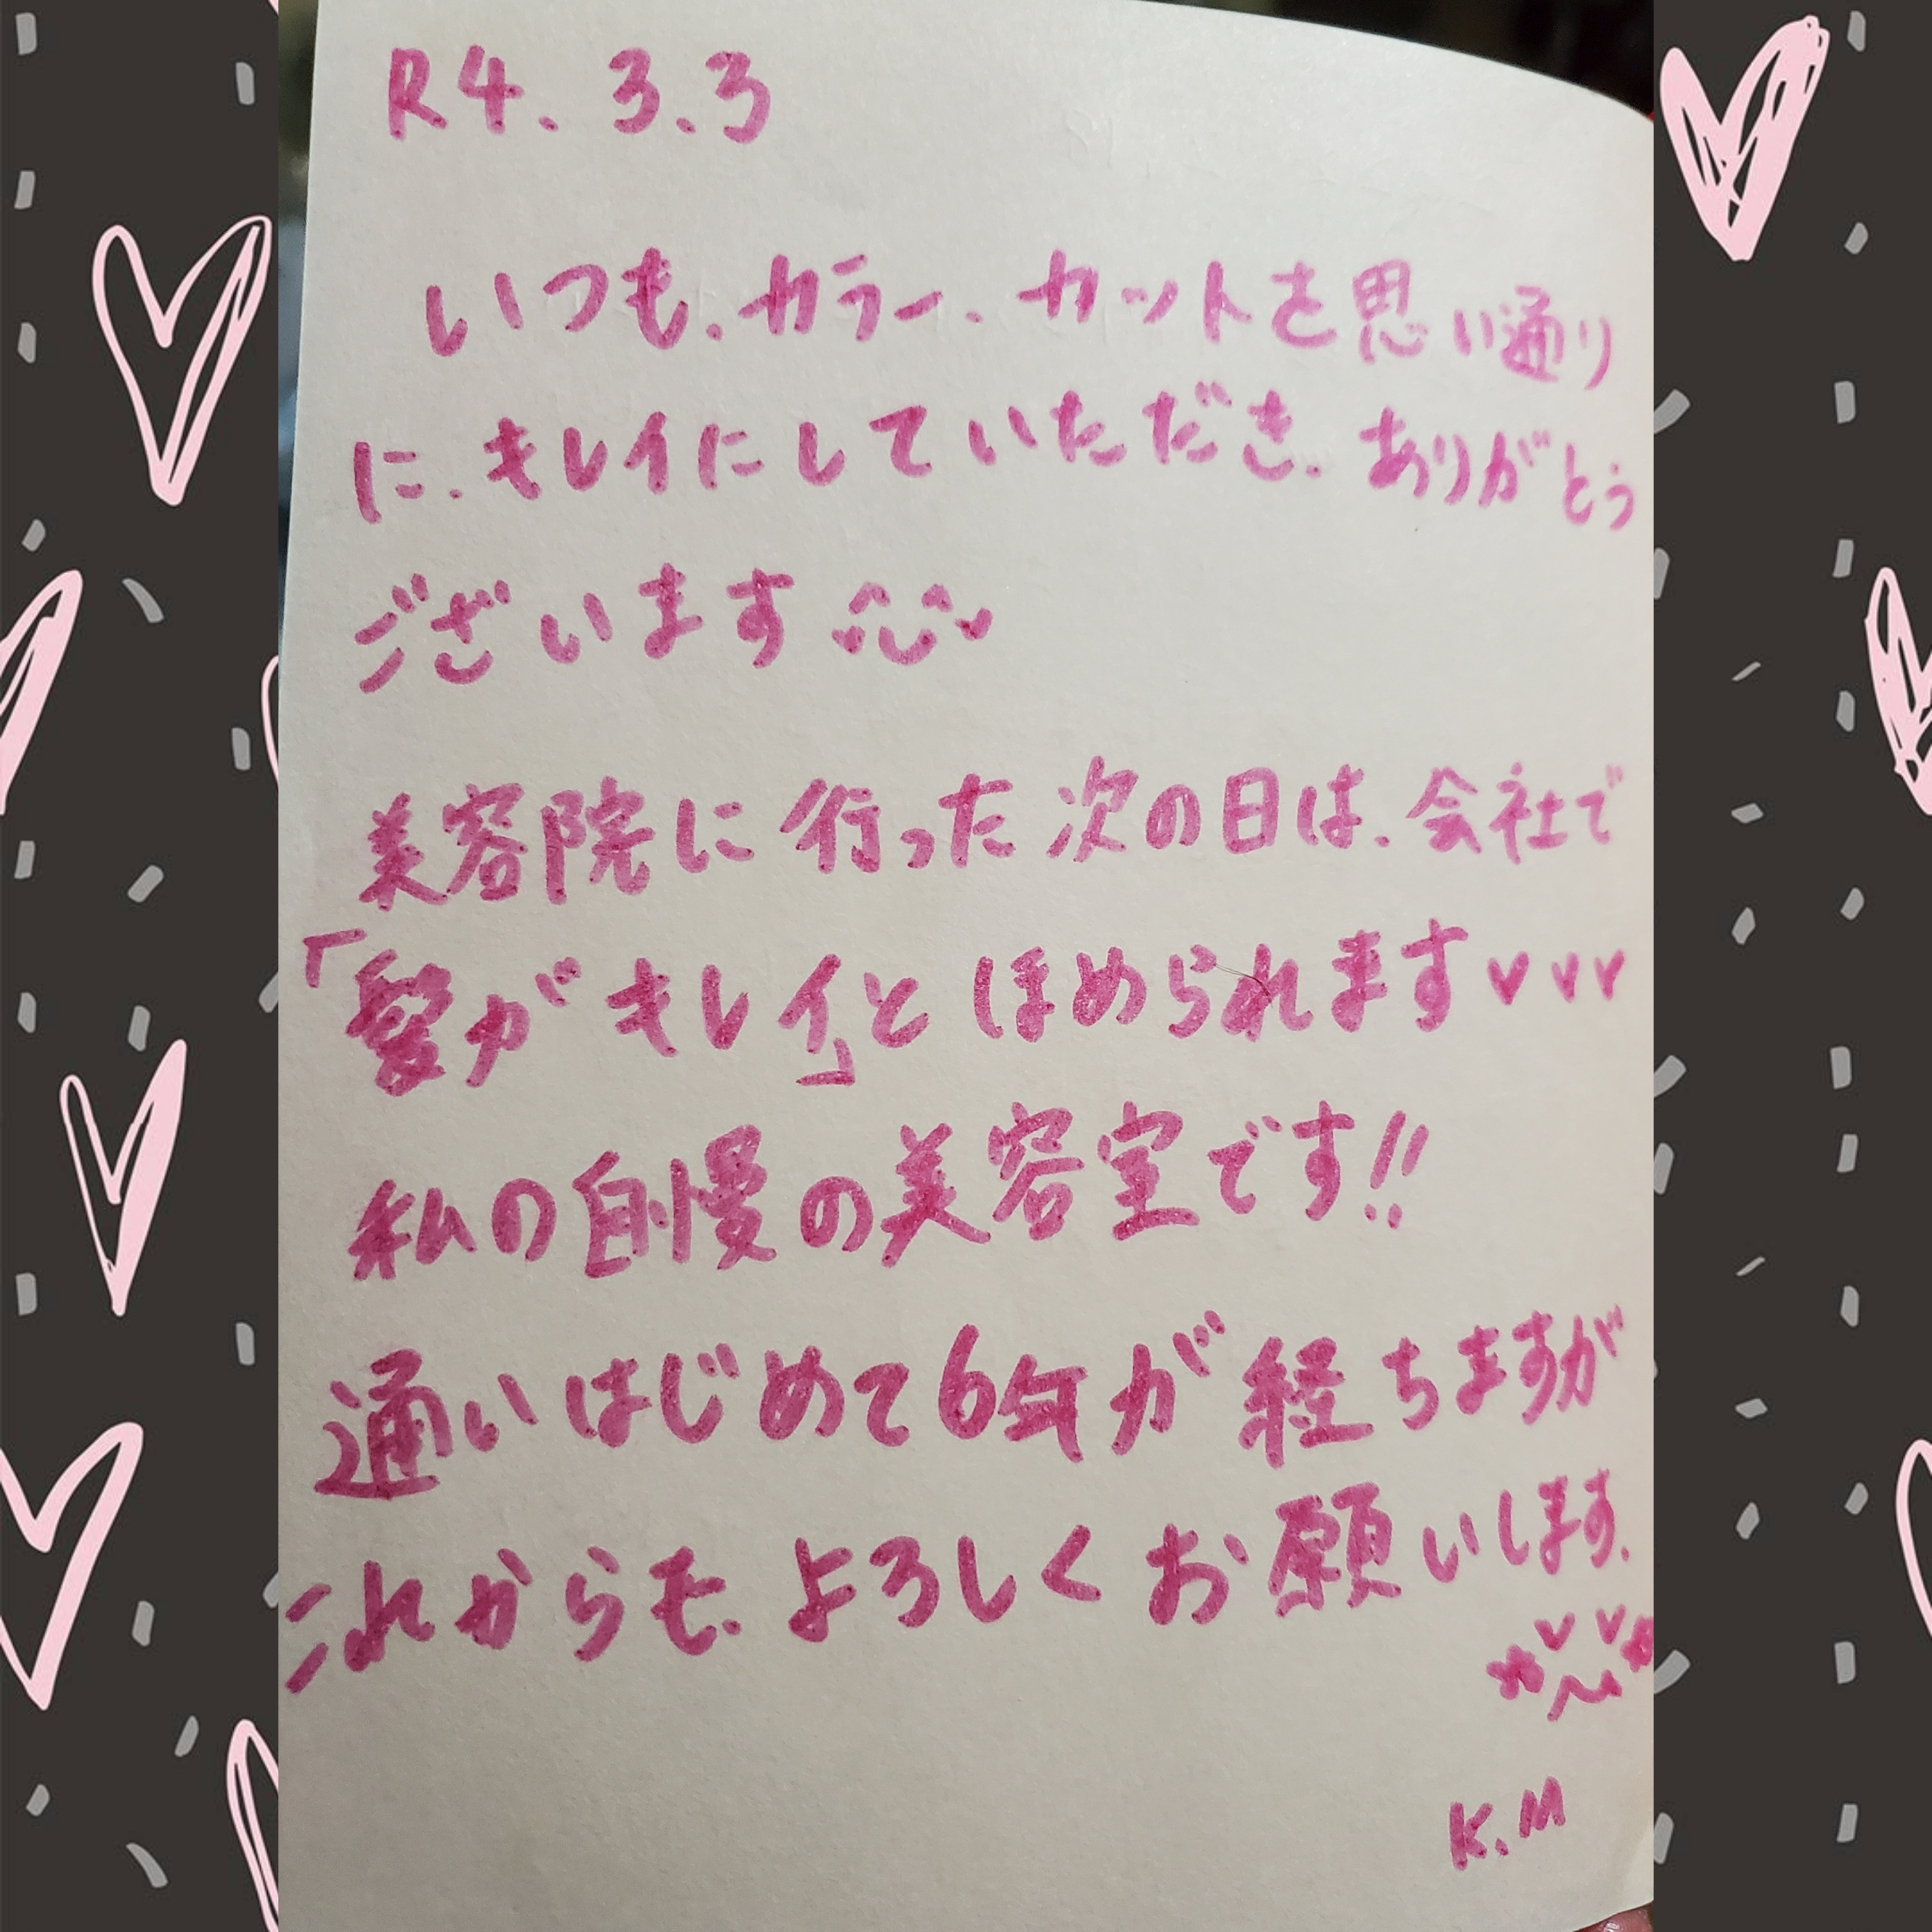 R4.3.3
いつも、カラー、カットを思い通り
に、キレイにしていただき、ありがとう
ございます
美容院に行った次の日は、会社で
「髪がキレイ」とほめられます♥♥♥
私の自慢の美容室です!!
通いはじめて6年が経ちますが
これからも、よろしくお願いします。
K.M